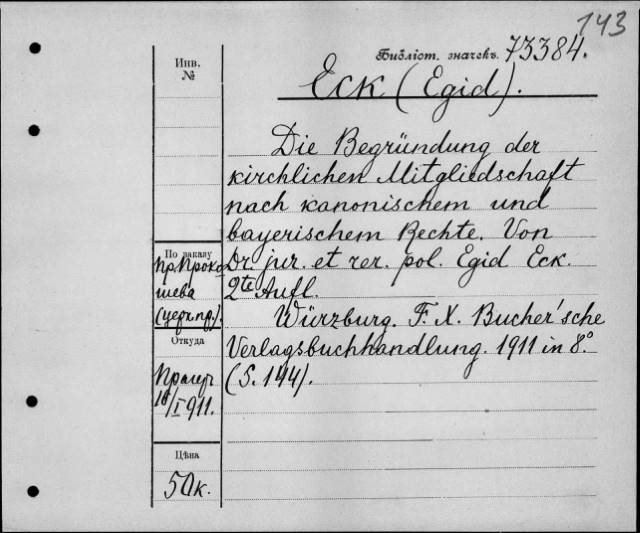 143
Библіот. значекъ. 73384.
Инв.
№
Eck (Egid).
Die Begründung der
kirchlichen Mitgliedschaft
nach kanonischem und
bayerischem Rechte. Von
Dr. jur. et rer. pol. Egid Eck.
2te Aufl.
Würzburg. F. X. Bucher'sche
Verlagsbuchhandlung. 1911 in 8.°
(S. 144).
По заказу
Пр. Проко-
шева
(церк. пр.).
Откуда
18/I 911.
Цѣна
50к.